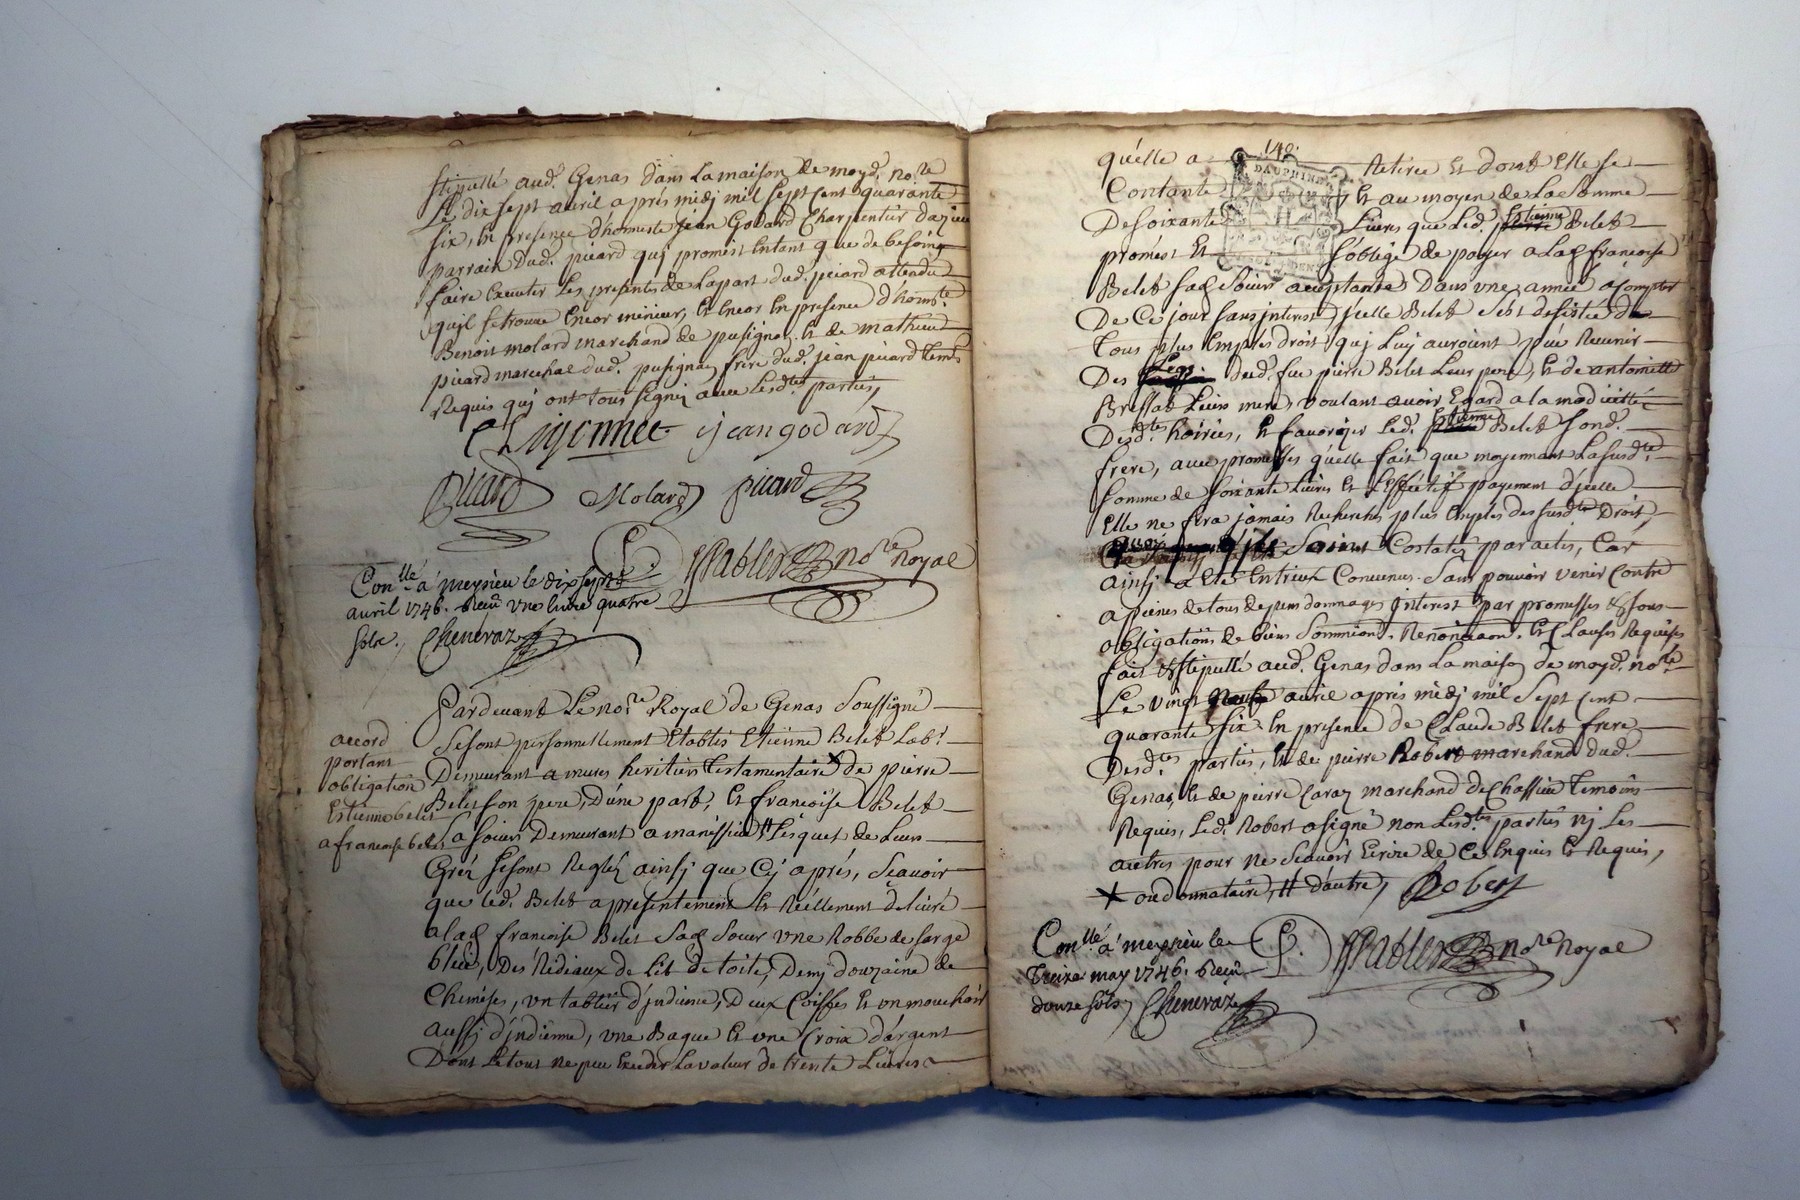 stipullé aud. Genas dans la maison de moyd. no.re
Le dix sept avril après midj mil sept cent quarante
six, en presence d'honneste jean Godard Charpentier dazieu
parrain dud. picard quj promest entant que de besoing
faire executer les presentes de la part dud. picard attendu
quil se trouve encor mineur, et encor en presence d'honn.te
Benoit molard marchand de pusignan et de mathieu
picard marechal dud. pusignan frere dud. jean picard temoins
Requis quj ont tous signez avec lesd.tes parties,
Lijonnet ijean godard
Picard Molard picard
Pader no.re royal
Con.llé a meysieu le dix sept
avril 1746. Receu une livre quatre
sols. Cheneraz
Pardevant Le no.re Royal de Genas Soussigné
accord
portant
obligation
Estienne belet
a francoise belet
Se sont personnellement Etablis Etienne Belet Lab.r
Demeurant a mures heritier testamentaire X de pierre
Belet son pere, d'une part, et francoise Belet
Sa soeur Demeurant a manissieu # Lesquels de Leurs
Gréz se sont Reglez ainsj que Cj après, Scavoir
que led. Belet a presentement et Réellement delivré
a lad. francoise Belet Sad. Soeur une Robbe de sarge
bleue, Des Rediaux de Lit de toile, Demj douzaine de
Chemises, un tablier d'jndienne, Deux Coiffes et un mouchoir
aussj d'jndienne, une Bague et une Croix d'argent
Dont Le tout ne peu Exceder La valeur de trente Livres
149.
DAUPHINE
qu'elle a Retirée et dont Elle se
Contante Et au moyen de La somme
De soixante Livres que Led. Estienne Belet
promest et s'oblige de payer a Lad. francoise
Belet sad. soeur acceptante Dans une année a compter
De Ce jour sans interest, jcelle Belet s'est desistée de
Tous plus emples droit quj Luj auroient pue Revenir
Des Legs dud. feu pierre Belet Leur pere, et de antoinette
Bressat Leur mere, voulant avoir Egard a la modicitté
Desd.tes hoiries, et favoriser Led. Estienne Belet sond.
frere, avec promesses qu'elle fait que moyennant La susd.te
somme de soixante Livres et L'effectif payement d'jcelle
Elle ne fera jamais Recherches plus Emples des susd.ts Droit,
Soient Costatez par actes, Car
ainsj a Eté Entreux Convenus. Sans pouvoir venir Contre
a peines de tous depens dommages jnterest par promesses et sous
obligations de biens Soummions. Renonciaon. et Clauses Requises
fait et stipullé aud. Genas dans La maison de moyd. no.re
Le vingt neuf avril après midj mil Sept Cent
quarante six En presence de Claude Belet frere
Desd.tes parties, Et de pierre Robert marchand dud.
Genas, Et de pierre Caraz marchand de Chassieu temoins
Requis, Led. Robert a signé non Lesd.tes parties nj Les
autres pour ne Scavoir Ecrire de Ce Enquis Et Requis,
X ou donnataire, # d'autre, Robert
Con.llé a meysieu le
treize may 1746. Receu
douze sols Cheneraz
Pader no.re Royal